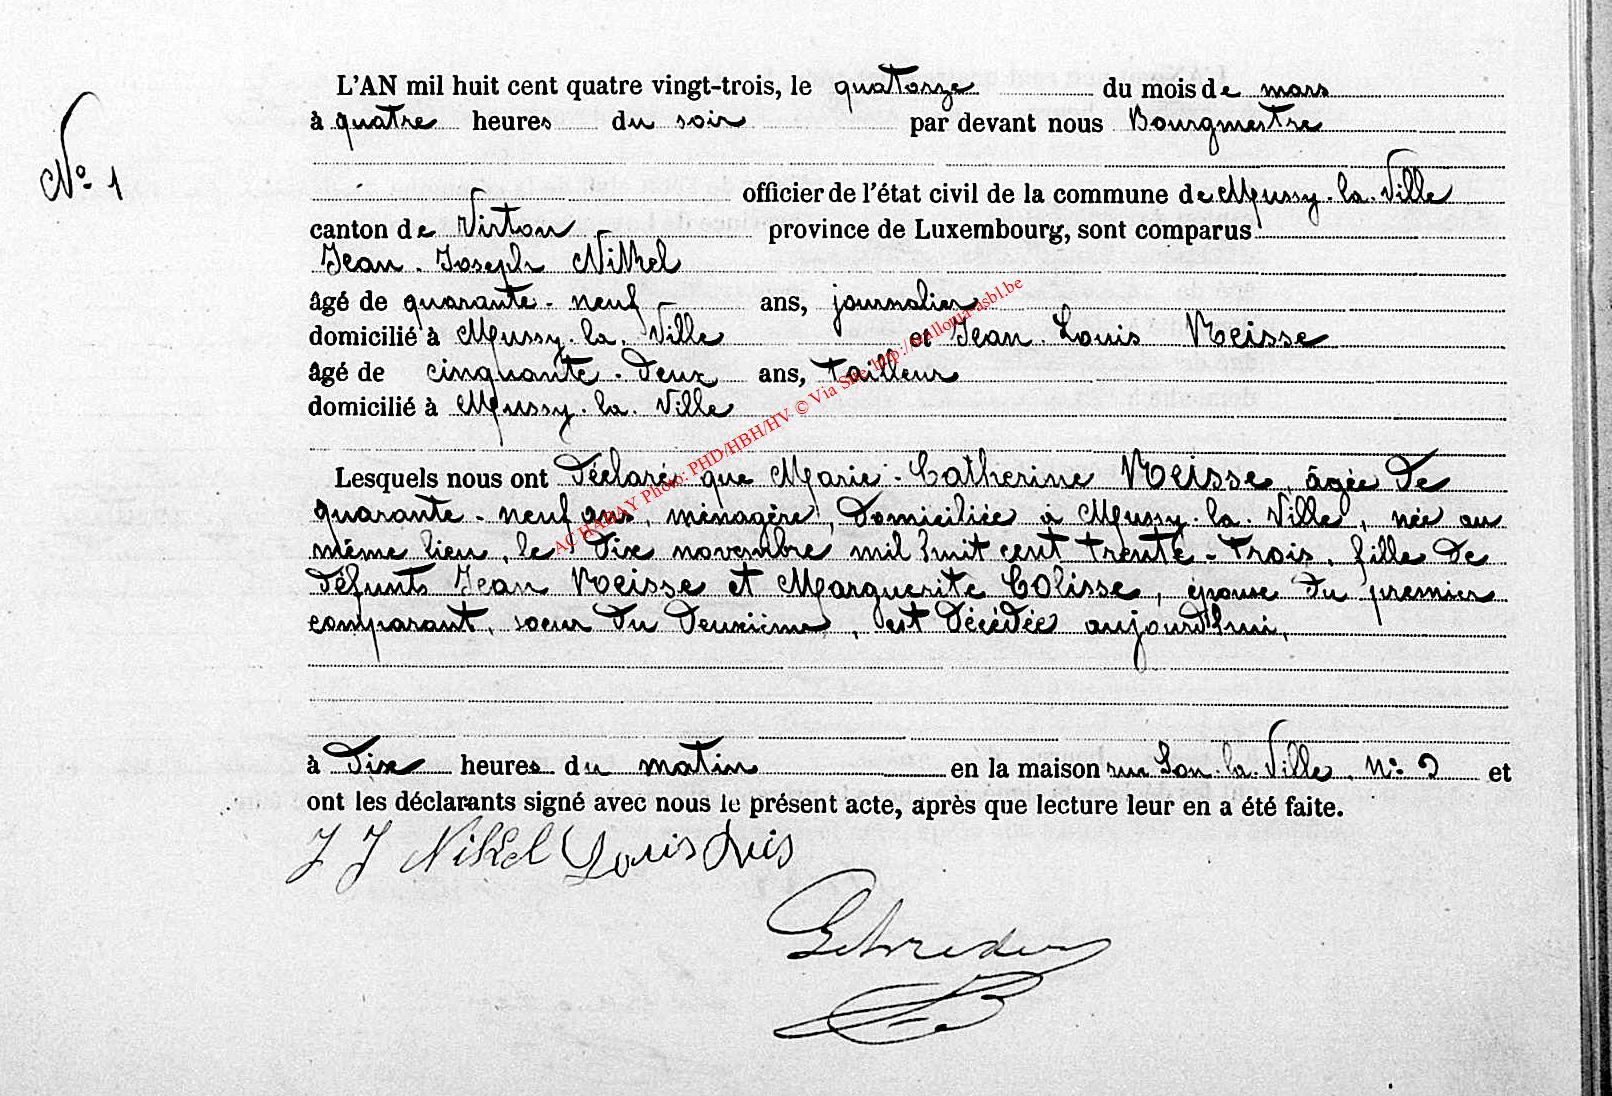 L'AN mil huit cent quatre vingt-trois, le quatorze du mois de mars
à quatre heures du soir par devant nous Bourgmestre
N° 1
officier de l'état civil de la commune de Mussy-la-Ville
canton de Virton province de Luxembourg, sont comparus
Jean-Joseph Nikkel
âgé de quarante-neuf ans, journalier
domicilié à Mussy-la-Ville et Jean-Louis Reisse
âgé de cinquante-deux ans, tailleur
domicilié à Mussy-la-Ville
Lesquels nous ont déclaré que Marie-Catherine Reisse, âgée de
quarante-neuf ans, ménagère, domiciliée à Mussy-la-Ville, née au
même lieu, le dix novembre mil huit cent trente-trois, fille de
défunts Jean Reisse et Marguerite Colisse, épouse du premier
comparant, soeur du deuxième, est décédée aujourd'hui,
à dix heures du matin en la maison sur Lon-la-Ville N° 2 et
ont les déclarants signé avec nous le présent acte, après que lecture leur en a été faite.
J J Nikel Louis
AC HABAY Photo: PHD/HBH/HV © Via Site http://wallonia-asbl.be